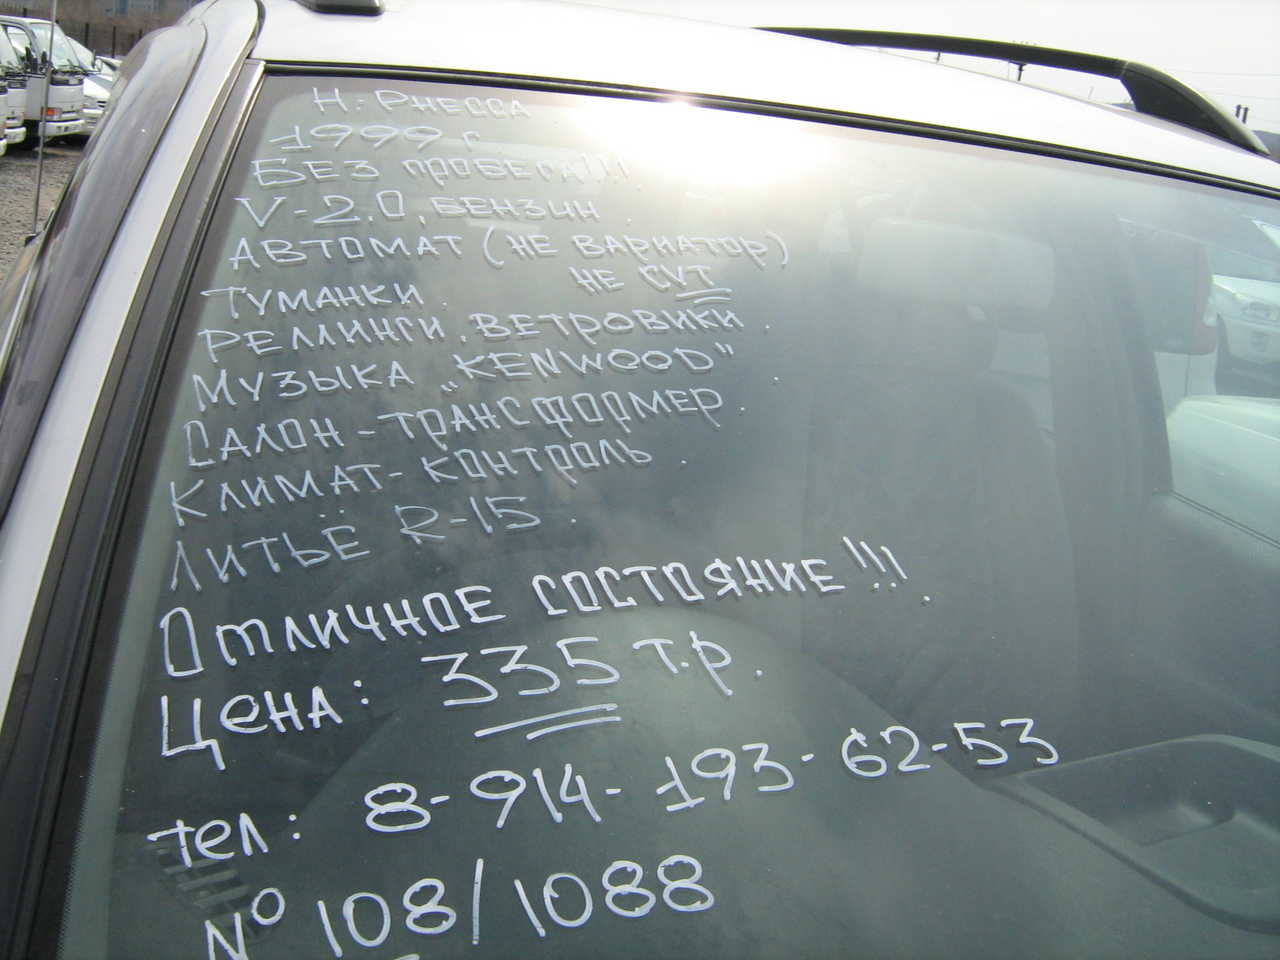 Н. Рнесса
1999 г.
Без пробега!!!
V-2.0, бензин.
Автомат (не вариатор)
не CVT
Туманки.
Реллинги, ветровики.
Музыка „KENWOOD”.
Салон-трансформер.
Климат-контроль.
Литьё R-15.
Отличное состояние!!!.
Цена: 335 т.р.
тел: 8-914-193-62-53
№ 108/1088